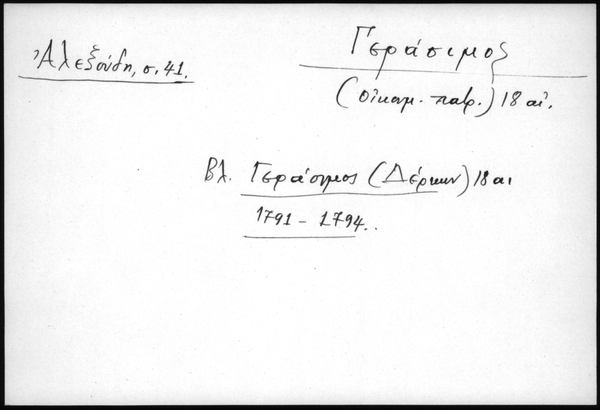 Ἀλεξούδη, σ. 41.
Γεράσιμος
(οἰκουμ. πατρ.) 18 αἰ.
Βλ. Γεράσιμος (Δέρκων) 18 αι
1791 - 1794..